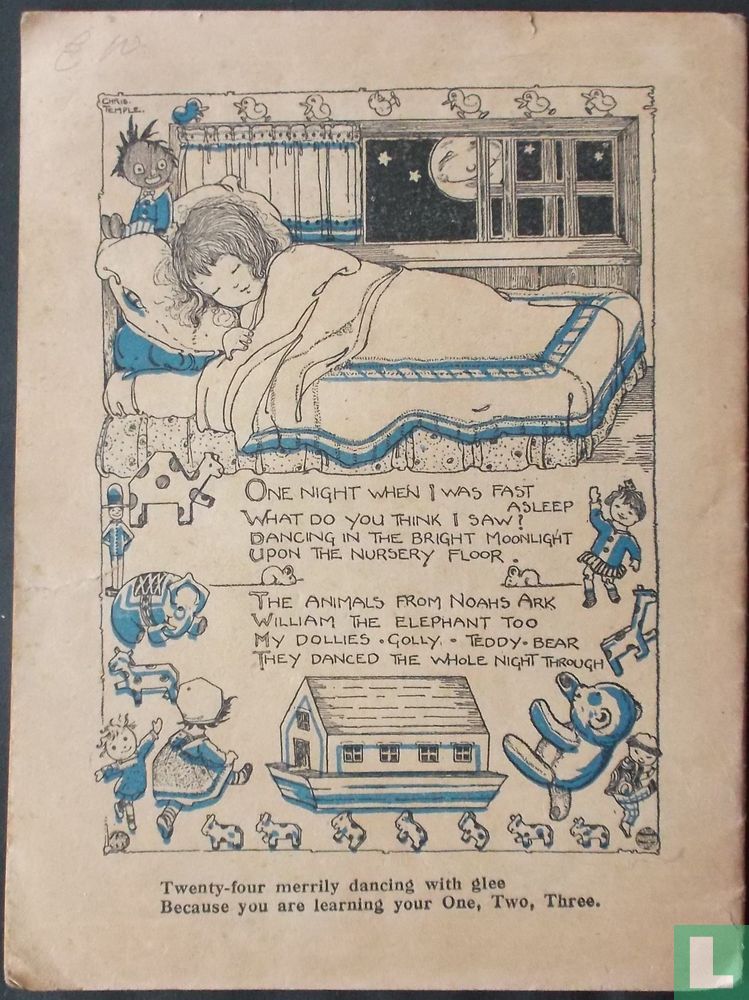 CHRIS.
TEMPLE.
ONE NIGHT WHEN I WAS FAST
ASLEEP
WHAT DO YOU THINK I SAW?
DANCING IN THE BRIGHT MOONLIGHT
UPON THE NURSERY FLOOR.
THE ANIMALS FROM NOAHS ARK
WILLIAM THE ELEPHANT TOO
MY DOLLIES · GOLLY · TEDDY · BEAR
THEY DANCED THE WHOLE NIGHT THROUGH
Twenty-four merrily dancing with glee
Because you are learning your One, Two, Three.
L